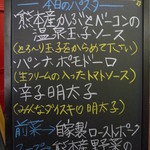 本日のパスタ
熊本産かぶとベーコンの
温泉玉子ソース
(とろ〜り玉子をからめて下さい)
パンナポモドーロ
(生クリームの入ったトマトソース)
辛子明太子
(みんなダイスキ♡明太子)
前菜→自家製ローストポーク
熊本産野菜の